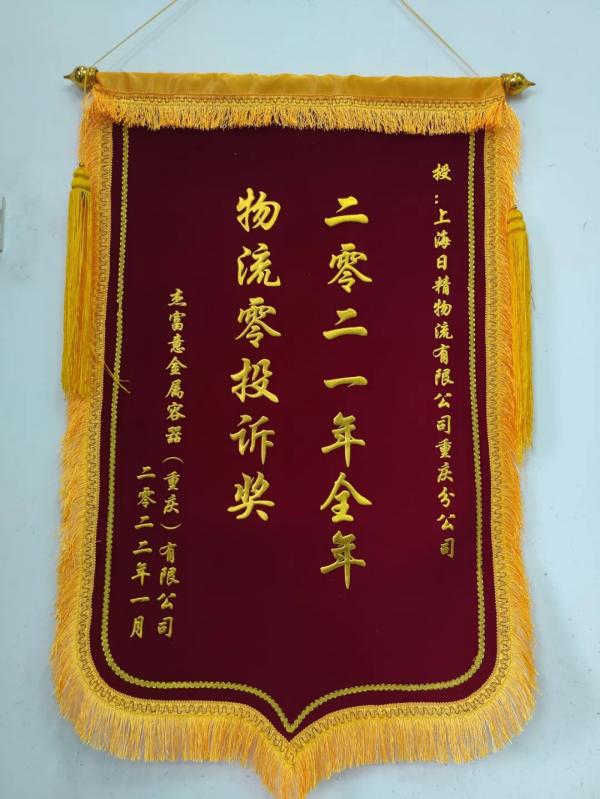 授：上海日精物流有限公司重庆分公司
二零二一年全年
物流零投诉奖
杰富意金属容器（重庆）有限公司
二零二二年一月